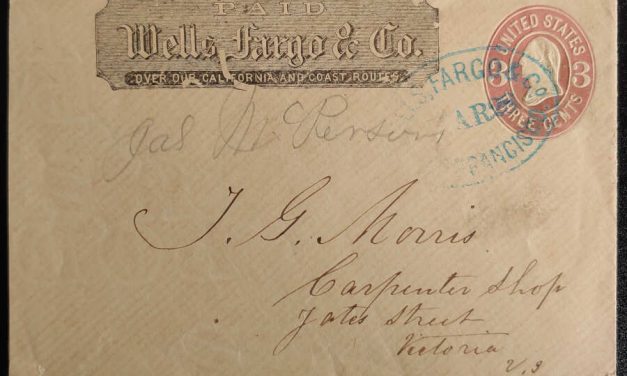 PAID
Wells, Fargo & Co.
OVER OUR CALIFORNIA AND COAST ROUTES.
UNITED STATES
3 3
THREE CENTS
FARGO & Co
MAR
FRANCIS
Jas
T. G. Morris
Carpenter Shop
Yates Street
Victoria
V.I